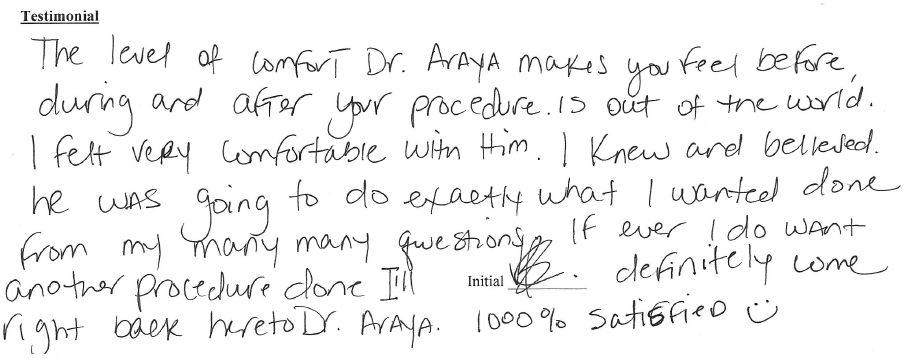 Testimonial
The level of comfort Dr. Araya makes you feel before,
during and after your procedure. is out of the world.
I felt very comfortable with Him. I knew and believed.
he was going to do exactly what I wanted done
from my many many questions. If ever I do want
another procedure done I'll Initial definitely come
right back here to Dr. Araya. 1000% satisfied ☺